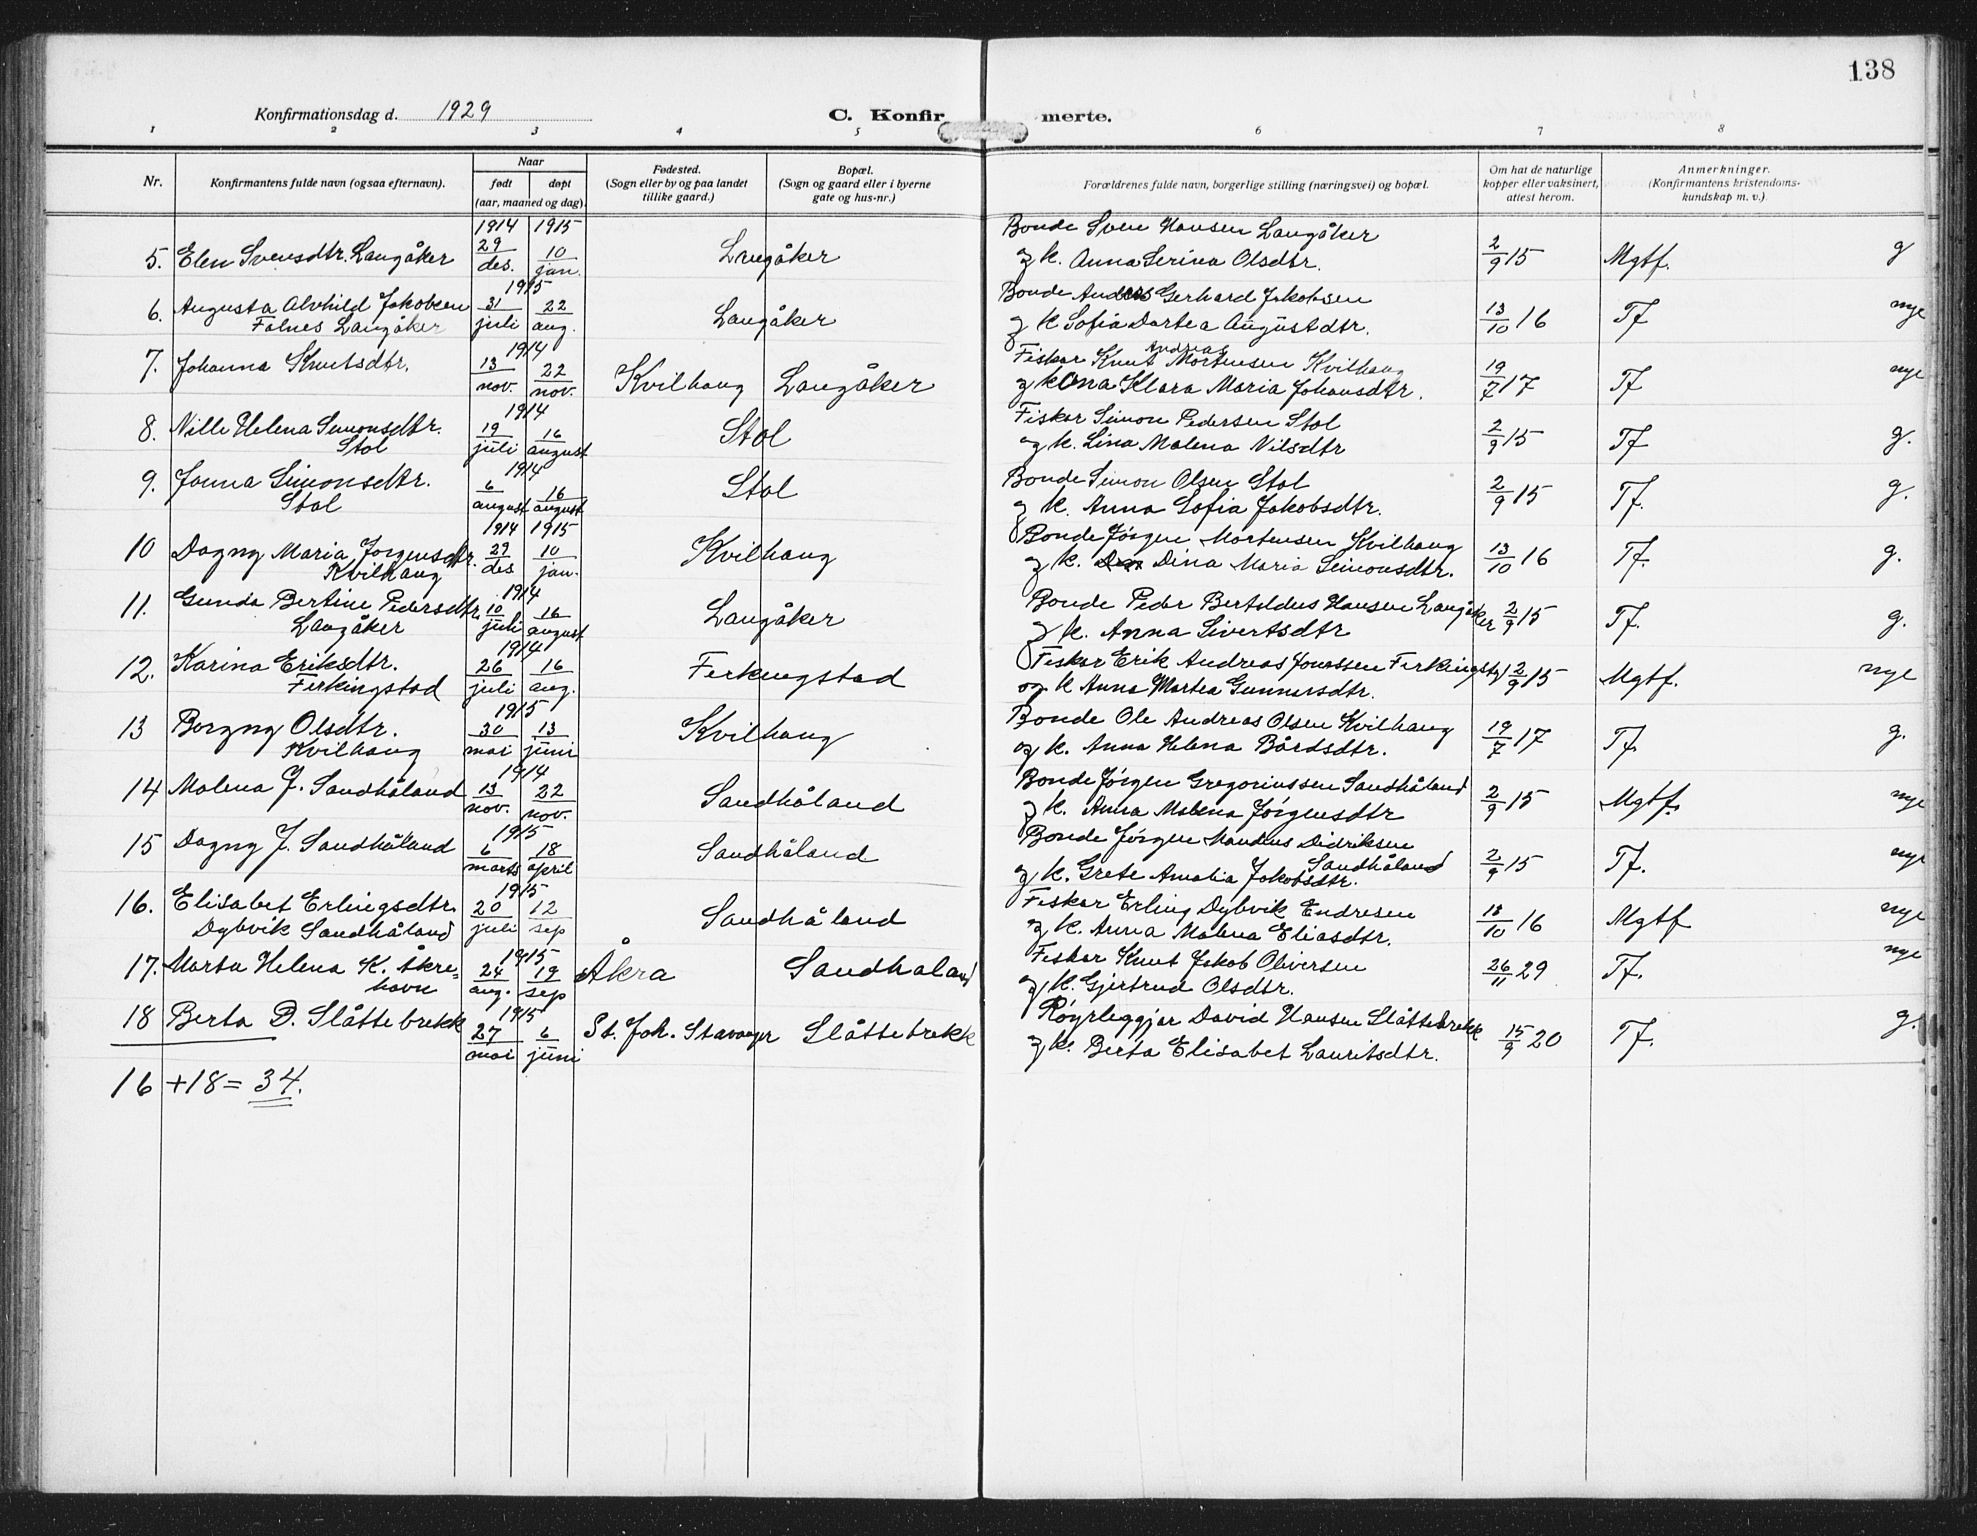 138
Konfirmationsdag d. 1929
C. Konfir merte.
1 2 3 4 5 6 7 8
Nr.
Konfirmantens fulde navn (ogsaa efternavn).
Naar
født døpt
(aar, maaned og dag).
Fødested.
(Sogn eller by og paa landet
tillike gaard.)
Bopæl.
(Sogn og gaard eller i byerne
gate og hus-nr.)
Forældrenes fulde navn, borgerlige stilling (næringsvei) og bopæl.
Om hat de naturlige
kopper eller vaksinert,
attest herom.
Anmerkninger.
(Konfirmantens kristendoms-
kundskap m. v.)
1914 1915 Bonde Sven Hansen Langåker
5. Elen Svensdtr. Langåker 29/des. 10/jan. Langåker og k. Anna Serina Olsdtr. 2/9 15 Mgtf. g
1915 Bonde Anders Gerhard Jakobsen
6. Augusta Alvhild Jakobsen 31/juli 22/aug. Langåker og k Sofia Dortea Augustdtr. 13/10 16 Tf nye
Falnes Langåker
1914 Fisker Knut Andreas Mortensen Kvilhaug
7. Johanna Knutsdtr. 13/nov. 22/nov. Kvilhaug Langåker og k Ona Klara Maria Johansdtr. 19/7 17 Tf nye
1914 Fisker Simon Pedersen Stol
8. Nille Helena Simonsdtr. 19/juli 16/august Stol og k. Lina Malena Nilsdtr 2/9 15 Tf g.
Stol
1914 Bonde Simon Olsen Stol
9. Jonna Simonsdtr. 6/august 16/august Stol og k. Anna Sofia Jakobsdtr. 2/9 15 Tf. g.
Stol
1914 1915 Bonde Jørgen Mortensen Kvilhaug
10 Dagny Maria Jørgensdtr. 29/des 10/jan. Kvilhaug og k. Dina Maria Simonsdtr. 13/10 16 Tf. g.
Kvilhaug
1914 Bonde Peder Bertoldus Hansen Langåker
11. Gunda Bertine Pedersdtr. 10/juli 16/august Langåker og k. Anna Sivertsdtr 2/9 15 Tf. g.
Langåker
1914 Fisker Erik Andreas Jonassen Ferkingst
12. Karina Eriksdtr. 26/juli 16/aug. Ferkingstad og k Anna Martea Gunnarsdtr. 2/9 15 Mgtf. nye
Ferkingstad
1915 Bonde Ole Andreas Olsen Kvilhaug
13 Borgny Olsdtr. 30/mai 13/juni Kvilhaug og k. Anna Helena Bårdsdtr. 19/7 17 Tf. g.
Kvilhaug
1914 Bonde Jørgen Gregoriussen Sandhåland
14 Malena J. Sandhåland 13/nov. 22/nov. Sandhåland og k. Anna Malena Jörgensdtr 2/9 15 Mgtf. nye
1915 Bonde Jørgen Mandius Didriksen
15 Dagny J. Sandhåland 6/marts 18/april Sandhåland Sandhåland
og k. Grete Amalia Jakobsdtr. 2/9 15 Tf. nye
1915 Fisker Erling Dybvik Endresen
16. Elisabet Erlingsdtr. 20/juli 12/sep Sandhåland og k. Anna Malena Eliasdtr. 13/10 16 Mgtf nye
Dybvik Sandhåland
1915 Fisker Knut Jakob Oliversen
17. Marta Helena K. Åkre= 24/aug. 19/sep Åkra Sandhaland og k. Gjertrud Olsdtr. 26/11 29 Tf. nye
havn
1915 Røyrleggjar David Hansen Slåttebrekk
18 Berta D. Slåttebrekk 27/mai 6/juni St. Joh. Stavanger Slåttebrekk og k. Berta Elisabet Lauritsdtr. 15/9 20 Tf. g.
16 + 18 = 34.